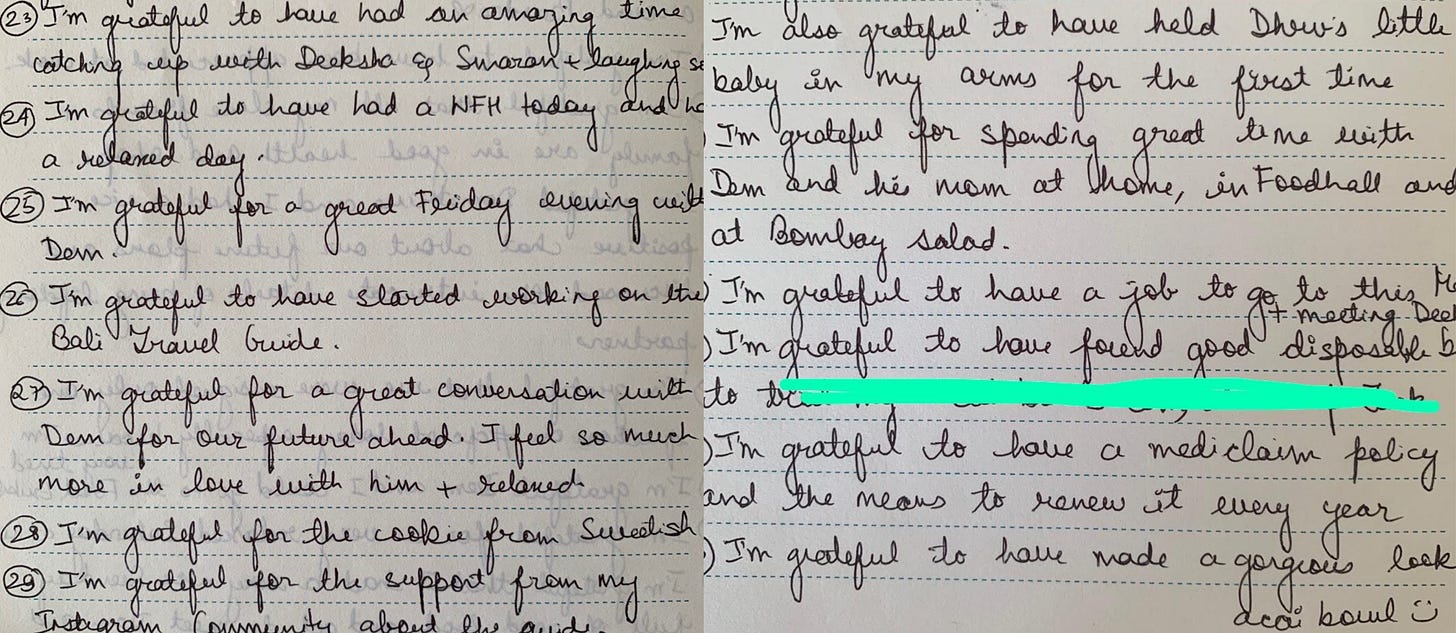 23 I'm grateful to have had an amazing time
catching up with Deeksha & Smaran + laughing
24 I'm grateful to have had a NFH today and
a relaxed day.
25 I'm grateful for a great Friday evening with
Dem.
26 I'm grateful to have started working on the
Bali Travel Guide.
27 I'm grateful for a great conversation with
Dem for our future ahead. I feel so much
more in love with him + relaxed.
28 I'm grateful for the cookie from Sweetish
29 I'm grateful for the support from my
Instagram Community about the guide.
I'm also grateful to have held Dhruv's little
baby in my arms for the first time
I'm grateful for spending great time with
Dem and his mom at home, in Foodhall and
at Bombay salad.
I'm grateful to have a job to go to this
+ meeting
I'm grateful to have found good disposable
to
I'm grateful to have a mediclaim policy
and the means to renew it every year
I'm grateful to have made a gorgeous look
acai bowl ☺